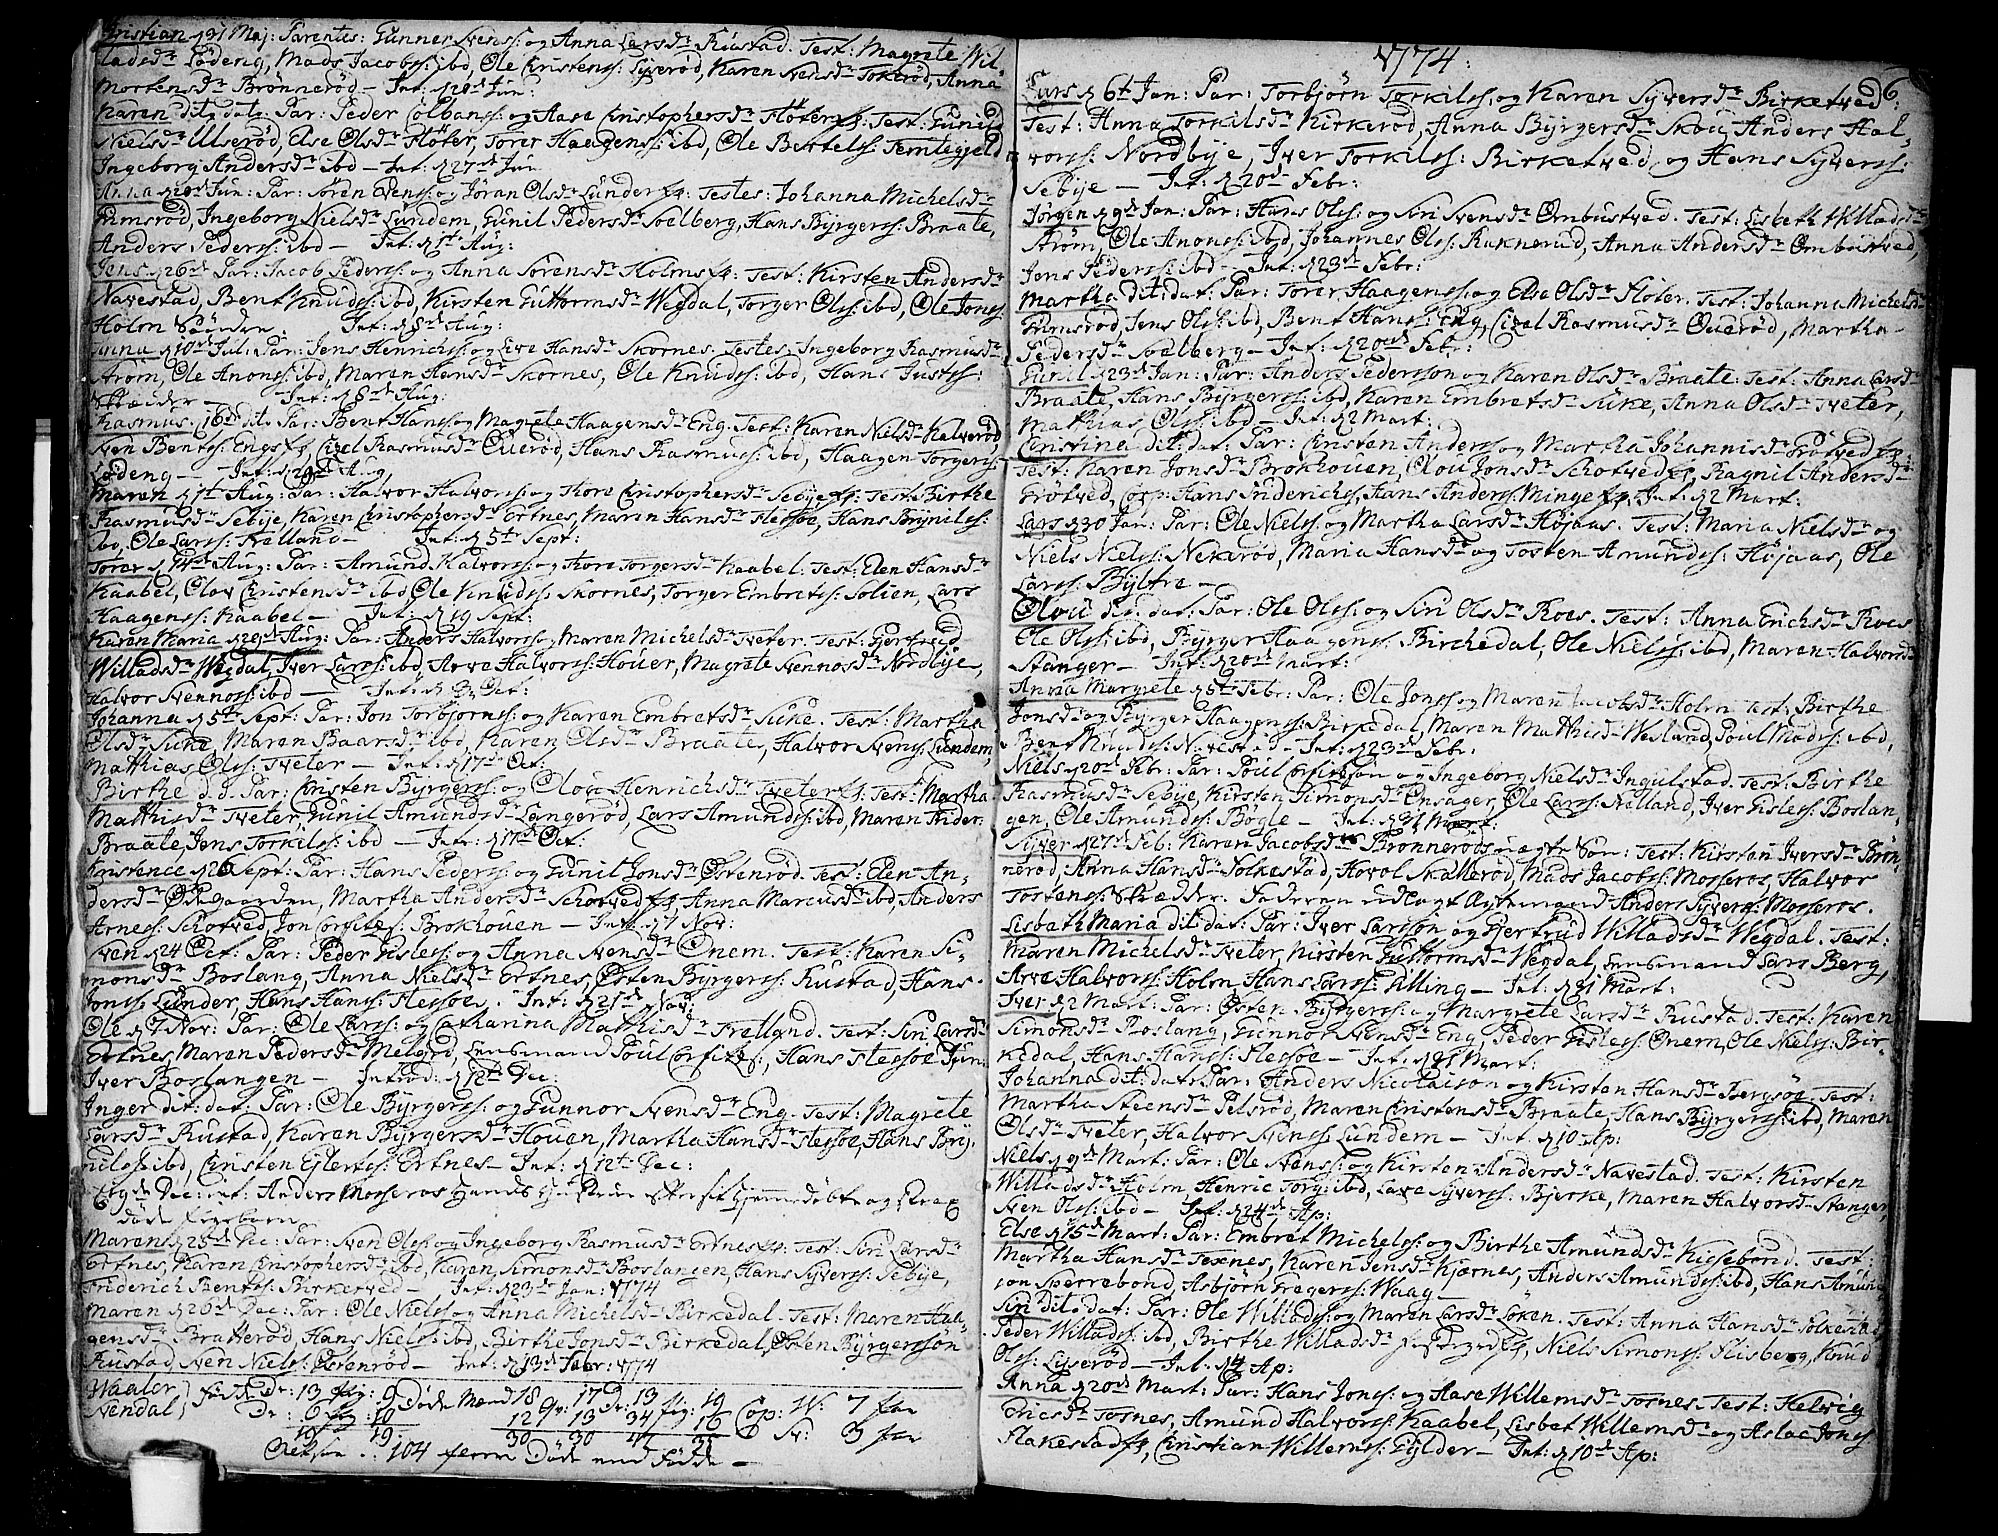 Cristian d 31 Maj: Parentes: Gunner Svenss: og Anna Larsdr Rustad. Test: Magrete Wil-
ladsdr Lödeng, Mads Jacobss: ibd, Ole Cristenss: Lyserød, Karen Svendsdr Tokerød, Anna
Mortensdr Brønnerød - Int: d 20d Jun:
Karen dit: dat: Par: Peder Colbens: og Aase Cristophersdr Fløter fg: Test: Gunild
Nielsdr Ulserød, Else Olsdr Fløter, Torer Haagenss: ibd, Ole Bertelss: Temtegjeld
Ingeborg Andersdr ibd - Int: d 27d Jun
Anna d 20d Jun: Par: Sören Svenss: og Joran Olsdr Lunder fg: Testes: Johanna Michelsdr
Grimsrød, Ingeborg Nielsdr Lundem, Gunil Pedersdr Soelberg, Hans Byrgerss: Braate,
Anders Pederss: ibd - Int: d 1t Aug:
Jens d 26d Par: Jacob Pederss: og Anna Sörensdr Holms fg: Test: Kirsten Andersdr
Navestad, Bent Knudss: ibd, Kirsten Guttormsdr Wegdal, Torger Olss: ibd, Ole Jonss:
Holm Sönden. Int: d 8d Aug:
Anna d 10d Jul: Par: Jens Henrichss: og Live Hansdr Skornes. Testes: Ingeborg Rasmusdr
Strøm, Ole Anonss: ibd, Maren Hansdr Skornes, Ole Knudss: ibd, Hans Justss:
Skrædder - Int: d 8d Aug:
Rasmus. 16d dit: Par: Bent Hanss: og Magrete Haagensdr Eng. Test: Karen Nielsdr Kalverød,
Sven Bentss: Engs fg, Cizel Rasmusdr Querød, Hans Rasmuss: ibd, Haagen Torgerss:
Lødeng - Int: d 29d Aug
Maren d 1t Aug: Par: Halvor Halvorss: og Thore Cristophersdr Sebye fg: Test: Birthe
Rasmusdr Sebye, Karen Cristophersdr Ertnes, Maren Hansdr Flessøe, Hans Brynilss:
ibd, Ole Larss: Frelland - Int: d 5t Sept:
Torer d 14d Aug: Par: Amund Halvorss: og Thore Torgersdr Kaabel: Test: Elen Hansdr
Kaabel, Olov Cristensdr ibd Ole Knudss: Skornes, Torger Embretss: Solien, Lars
Haagenss: Kaabel - Int: d 19 Sept:
Karen Maria d 29d Aug: Par: Anders Halvorss: og Maren Michelsdr Tveter. Test: Gjertrud
Willadsdr Wegdal, Iver Larss: ibd, Arve Halvorss: Houer, Magrete Svennosdr Nordbye,
Halvor Svennoss: ibd - Int: d 3 Oct:
Johanna d 5t Sept: Par: Jon Torbjornss: og Karen Embretsdr Suke. Test: Martha
Olsdr Suke, Maren Baarsdr ibd, Karen Olsdr Braate, Halvor Svenss: Lundem,
Mathias Olss: Tveter - Int: d 17d Oct:
Birthe d. d Par: Cristen Byrgerss: og Olou Henrichsdr Tveter fg: Test: Martha
Mathisdr Tveter, Gunil Amundsdr Langerød, Lars Amundss: ibd, Maren Ander:
Braate, Jens Torkilss: ibd - Int: d 17d Oct:
Kristence d 26 Sept: Par: Hans Pederss: og Gunil Jonsdr Østenrød. Test: Elen An-
dersdr Ødegaarden, Martha Andersdr Schotved fg Anna Marcusdr ibd, Anders
Arness: Schotved, Jon Corfitzs: Brokhouen - Int: d 7 Nov:
Sven d 24 Oct: Par: Peder Gisless: og Anna Svensdr Onem. Test: Karen Si-
monsdr Boslang, Anna Nielsdr Ertnes, Østen Byrgerss: Rustad, Hans
Jonss: Lunder, Hans Hanss: Flessøe. Int: d 21d Nov:
Ole d 7 Nov: Par: Ole Larss: og Catharina Mathisdr Frelland. Test: Siri Larsdr
Ertnes, Maren Pedersdr Melgrd, Lensmand Poul Corfitzs:, Hans Flessøe Jun:
Iver Boslangen - Introd: d 12d Dec:
Inger dit: dat: Par: Ole Byrgerss: og Gunnor Svensdr Eng. Test: Magrete
Larsdr Rustad, Karen Byrgersdr Houen, Martha Hansdr Flessøe, Hans Bry-
nilss: ibd, Cristen Ejlertss: Ertnes - Int: d 12t Dec:
d 19d Dec: int: Anders Mosseros Hands Hustrue efter sit hjemmedøbte og strax
døde Pigebarn
Maren d 25d Dec: Par: Sven Olss: og Ingeborg Rasmusdr Ertnes fg: Test: Siri Larsdr
Ertnes, Karen Cristophersdr ibd, Karen Simonsdr Boslangen, Hans Syverss: Sebye,
Friderich Bentss: Birketved - Int: d 23d Jan: 1774
Maren d 26d Dec: Par: Ole Nielss: og Anna Michelsdr Birkedal. Test: Maren Haa-
gensdr Bratterød, Hans Nielss: ibd, Birthe Jonsdr Birkedal, Østen Byrgerssøn
Rustad, Sven Nielss: Østenrød - Int: d 13d Febr: 1774
Waaler, } fødde Dr: 13 Pig: 9 Døde Mænd 18 Qv: 17 Dr: 13 Pig: 19 Cop: W: 7 par
Svendal, } Dr: 6 Pig: 10 12 13 34 16 S: 3 par
19 19. 30 30 47 35
104 flere Døde end Fødde -
1774.
6
Lars d 6t Jan: Par: Torbjörn Torkilss: og Karen Syversdr Birketved:
Test: Anna Torkilsdr Kirkerød, Anna Byrgersdr Skou, Anders Hal-
vorss: Nordbye, Iver Torkilss: Birketved og Hans Syverss:
Sebye - Int: d 20d Febr:
Jörgen d 9d Jan: Par: Hans Olss: og Siri Svensdr Ombustved. Test: Lisbeth Willadsdr
Strøm, Ole Anonss: ibd, Johannes Olss: Ruknerud, Anna Andersdr Ombustved,
Jens Pederss: ibd - Int: d 23d Febr:
Martha dit: dat: Par: Torer Haagenss: og Else Olsdr Fløter. Test: Johanna Michelsdr
Grimsrød, Jens Olss: ibd, Bent Hanss: Eng, Cizel Rasmusdr Querød, Martha
Pedersdr Soelberg - Int: d 20d Febr:
Gunil d 23d Jan: Par: Anders Pederssön og Karen Olsdr Braate: Test: Anna Larsdr
Braate, Hans Byrgerss: ibd, Karen Embretsdr Suke, Anna Olsdr Tveter,
Mathias Olss: ibd - Int: d 2 Mart:
Cristina dit: dat: Par: Cristen Anderss: og Martha Johannisdr Grøtved fg:
Test: Karen Jonsdr Brokhouen, Olou Jonsdr Schotved fg, Ragnil Andersdr
Grøtved, Corp: Hans Friderichs, Hans Anderss: Minge fg, Int: d 2 Mart:
Lars d 30 Jan: Par: Ole Nielss: og Martha Larsdr Højaas. Test: Maria Nielsdr og
Niels Nielss: Nekerød, Maria Hansdr og Tosten Amundss: Højaas, Ole
Larss: Bybfre -
Olou dit: dat: Par: Ole Olss: og Siri Olsdr Roes. Test: Anna Erichsdr Roes
Ole Olss: ibd, Byrger Haagenss: Birchedal, Ole Nielss: ibd, Maren Halvorsdr
Stanger - Int: d 20d Mart:
Anna Margrete d 5t Febr: Par: Ole Jonss: og Maren Jacobsdr Holm Test: Birthe
Jonsdr og Byrger Haagenss: Birkedal, Maren Mathisdr Wesland, Poul Madss: ibd,
Bent Knudss: Navestad - Int: d 23d Febr:
Niels d 20d Febr: Par: Poul Corfitzsön og Ingeborg Nielsdr Ingulstad. Test: Birthe
Rasmusdr Sebye, Kirsten Simonsdr Onsager, Ole Larss: Frelland, Iver Gisless: Boslan-
gen, Ole Amundss: Bøgle - Int: d 31 Mart:
Syver d 27d Feb: Karen Jacobsdr Brønnerøds uægte Søn: Test: Kirsten Iversdr Brøn-
nerød, Anna Hansdr Folkestad, Hovol Skallerød, Mads Jacobss: Mosseros, Halvor
Tostenss: Skrædder. Faderen udlagt Gyttmand Anders Syverss: Mosseros.
Lisbeth Maria dit: dat: Par: Iver Larssön og Gjertrud Willadsdr Wegdal. Test:
Maren Michelsdr Tveter, Kirsten Guttormsdr Wegdal, Lensmand Lars Berg,
Arve Halvorss: Holm, Hans Larss: Silling - Int: d 31 Mart:
Iver d 2 Mart: Par: Østen Byrgerss: og Margrete Larsdr Rustad. Test: Karen
Simonsdr Boslang, Gunnor Svensdr Eng, Peder Gisless: Onem, Ole Nielss: Bir-
kedal, Hans Hanss: Flessøe - Int: d 31 Mart:
Johanna dit: dat: Par: Anders Nicolaison og Kirsten Hansdr Bergsøe. Test:
Martha Steensdr Pelsrød, Maren Cristensdr Braate, Hans Byrgerss: ibd, Maren
Olsdr Tveter, Halvor Svenss: Lundem - Int: d 10 Ap:
Niels d 9d Mart: Par: Ole Svenss: og Kirsten Andersdr Navestad. Test: Kirsten
Willadsdr Holm, Henric Torg: ibd, Lave Syverss: Bjerke, Maren Halvorsdr Stanger,
Sven Olss: ibd - Int: d 24d Ap:
Else d 15d Mart: Par: Embret Michelss: og Birthe Amundsdr Kissebond. Test:
Martha Hansdr Texnes, Karen Jensdr Kjærnes, Anders Amundss: ibd, Hans Amund-
son Sperrebond, Asbjörn Gregerss: Waag -
Siri dit: dat: Par: Ole Willadss: og Maren Larsdr Løken. Test: Anna Hansdr Folkestad
Peder Willadss: ibd, Birthe Willadsdr fg, Niels Simonss: Flisberg, Knud
Olss: Lyserød - Int: d 4 Ap:
Anna d 20d Mart: Par: Hans Jonss: og Aase Willemsdr Tornes. Test: Helvig
Ericsdr Tosnes, Amund Halvorss: Kaabel, Lisbet Willemsdr og Aslac Jonss
Slakestad fg, Cristian Willemss: Gylder - Int: d 10d Ap: